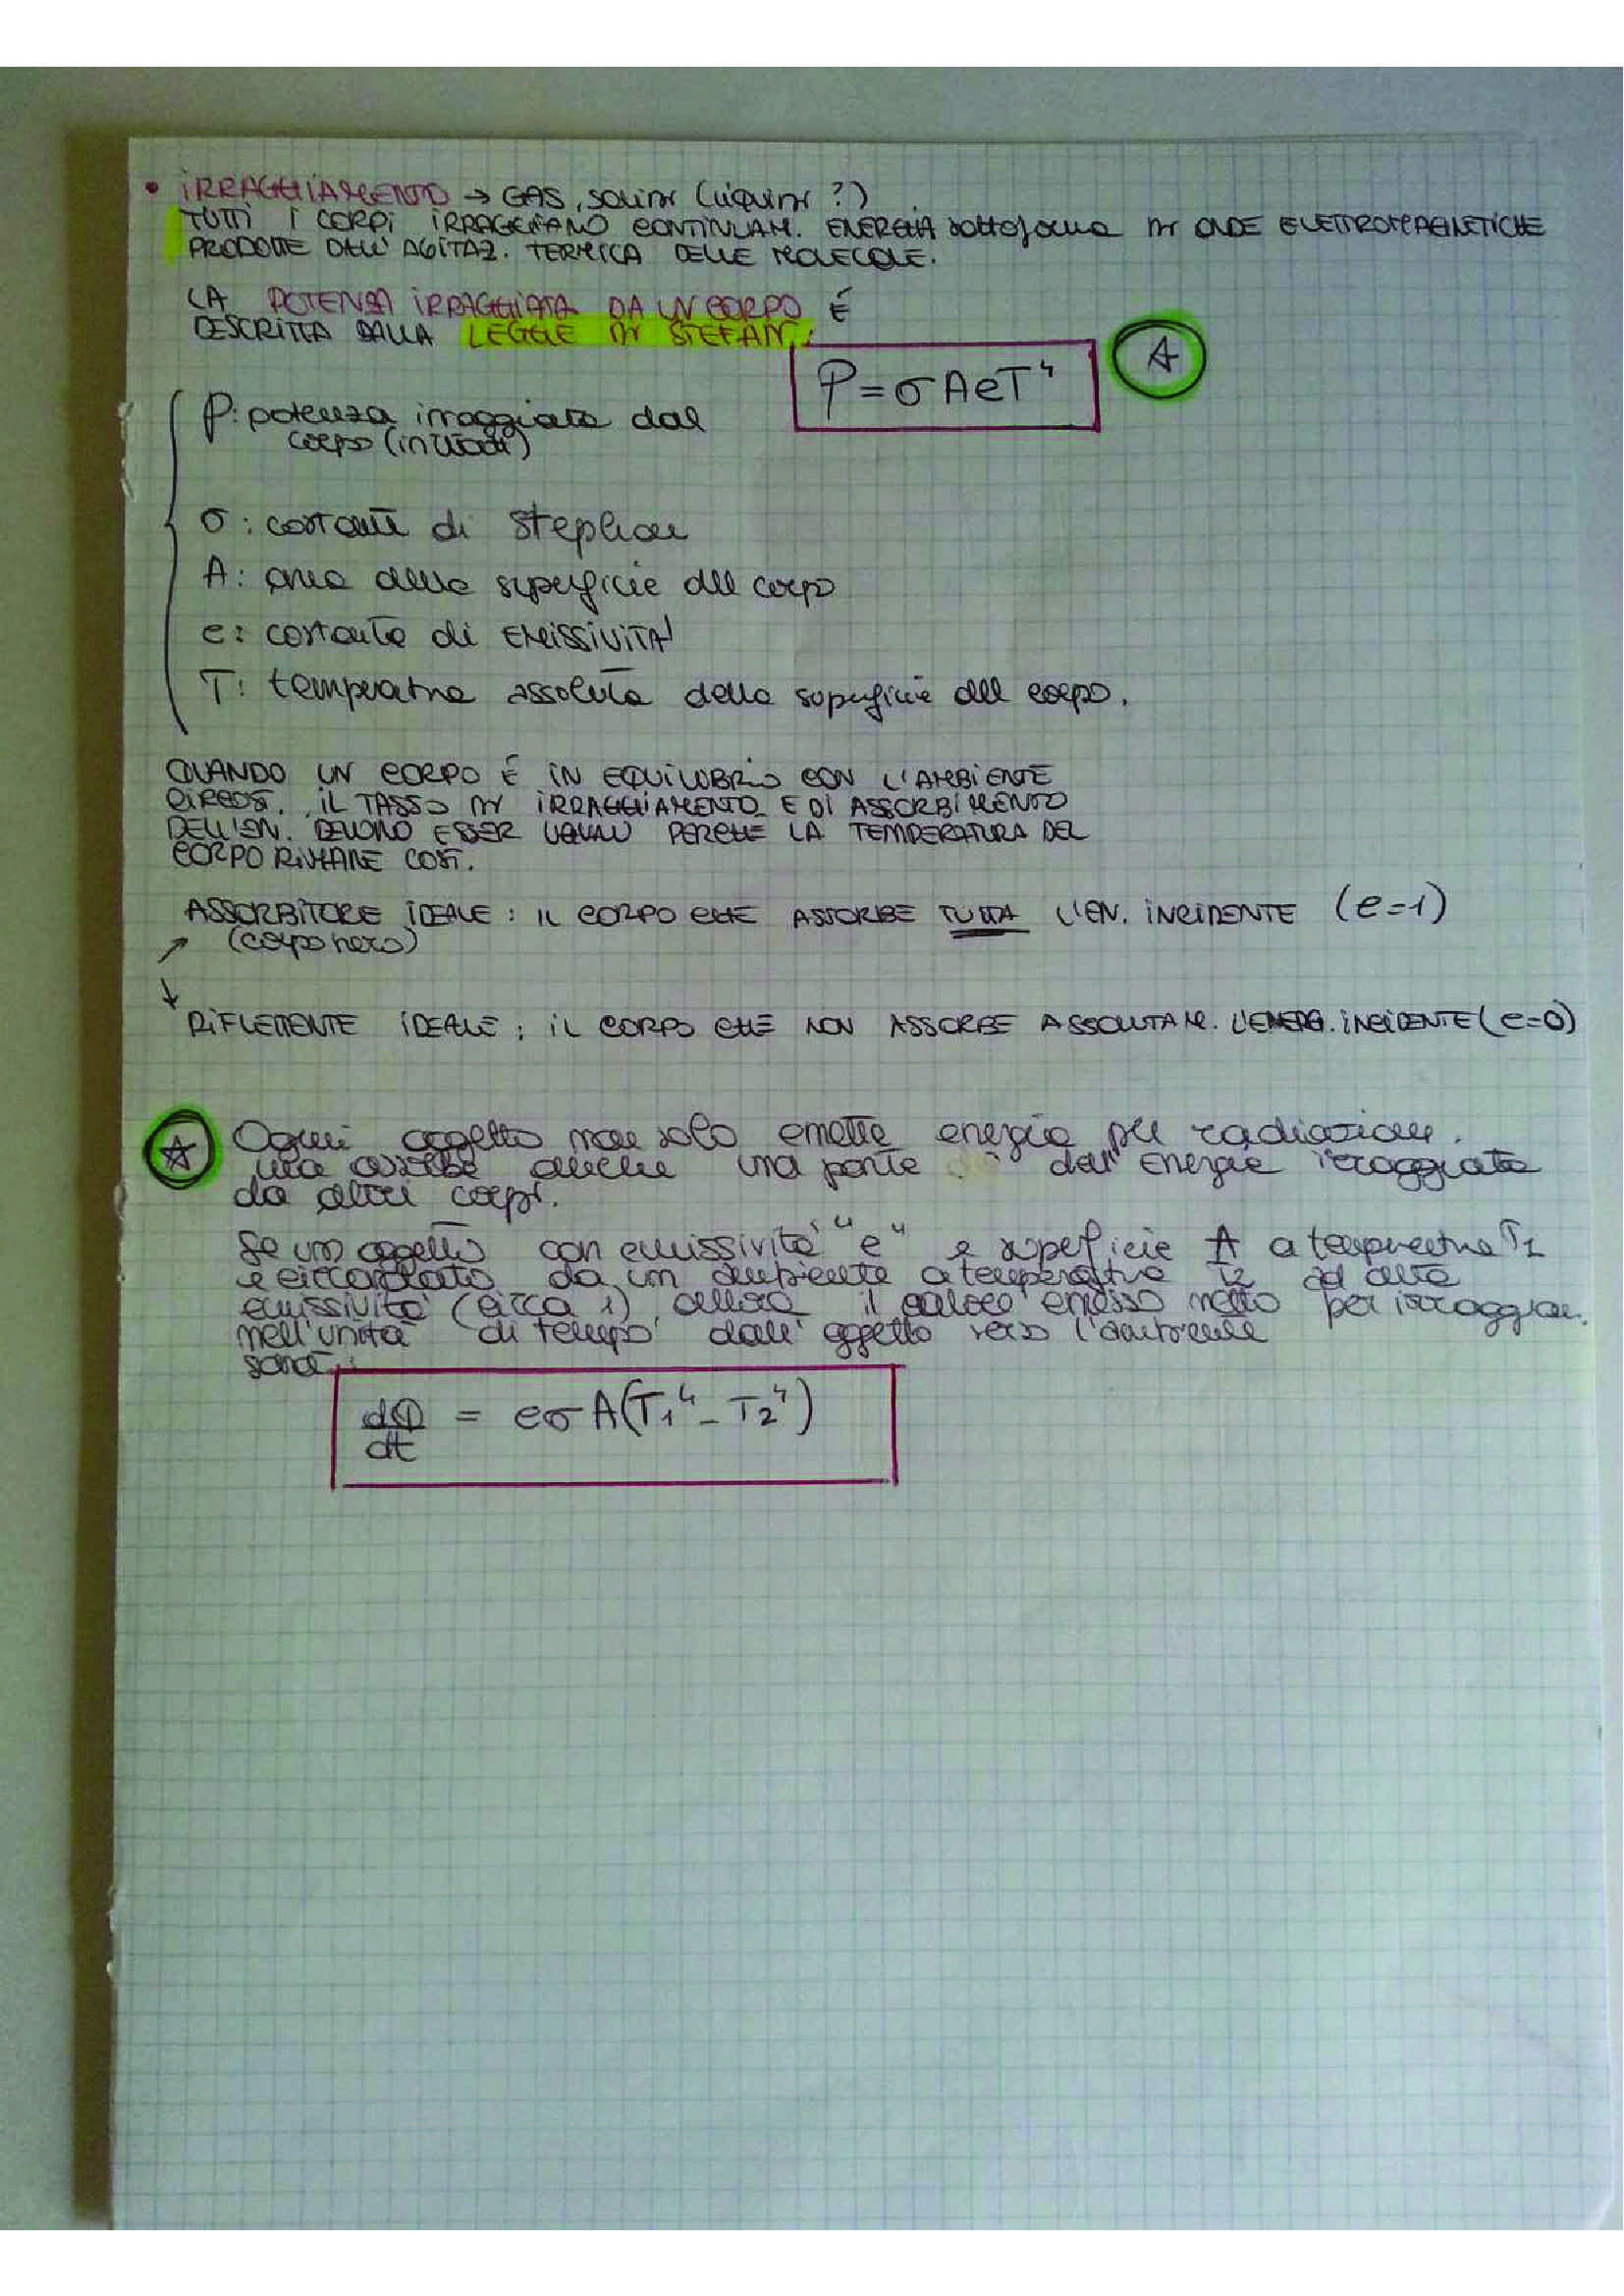 • IRRAGGIAMENTO → GAS, SOLIDI (LIQUIDI ?)
TUTTI I CORPI IRRAGGIANO CONTINUAM. ENERGIA sottoforma DI ONDE ELETTROMAGNETICHE
PRODOTTE DALL'AGITAZ. TERMICA DELLE MOLECOLE.
LA POTENZA IRRAGGIATA DA UN CORPO É
DESCRITTA DALLA LEGGE DI STEFAN:
P = σ A e T⁴
P: potenza irraggiata dal
corpo (in Watt)
σ: costante di Stephan
A: area della superficie del corpo
e: costante di EMISSIVITA'
T: temperatura assoluta della superficie del corpo.
QUANDO UN CORPO É IN EQUILIBRIO CON L'AMBIENTE
CIRCOST. IL TASSO DI IRRAGGIAMENTO E DI ASSORBIMENTO
DELL'EN. DEVONO ESSER UGUALI PERCHE LA TEMPERATURA DEL
CORPO RIMANE COST.
ASSORBITORE IDEALE: IL CORPO CHE ASSORBE TUTTA L'EN. INCIDENTE (e=1)
(corpo nero)
RIFLETTENTE IDEALE: IL CORPO CHE NON ASSORBE ASSOLUTAM. L'ENERG. INCIDENTE (e=0)
Ogni oggetto non solo emette energia per radiazione,
ma assorbe anche una parte dell'energia irraggiata
da altri corpi.
Se un oggetto con emissività "e" e superficie A a temperatura T1
e circondato da un ambiente a temperatura T2 ad alta
emissività (circa 1) allora il calore emesso netto per irraggiam.
nell'unità di tempo dall'oggetto verso l'ambiente
sarà:
dQ/dt = eσA(T₁⁴ - T₂⁴)